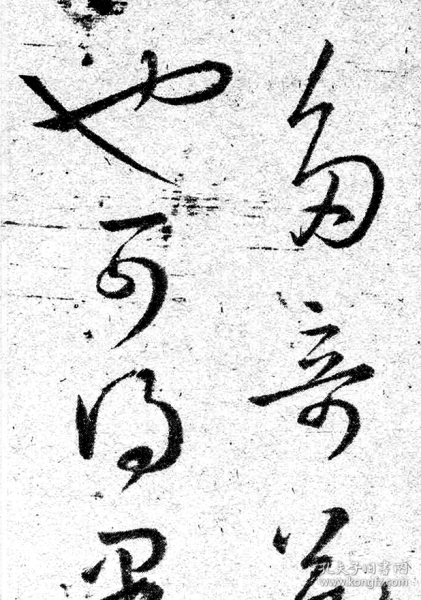 多奇益
也可得果
孔夫子旧书网
www.kongfz.com